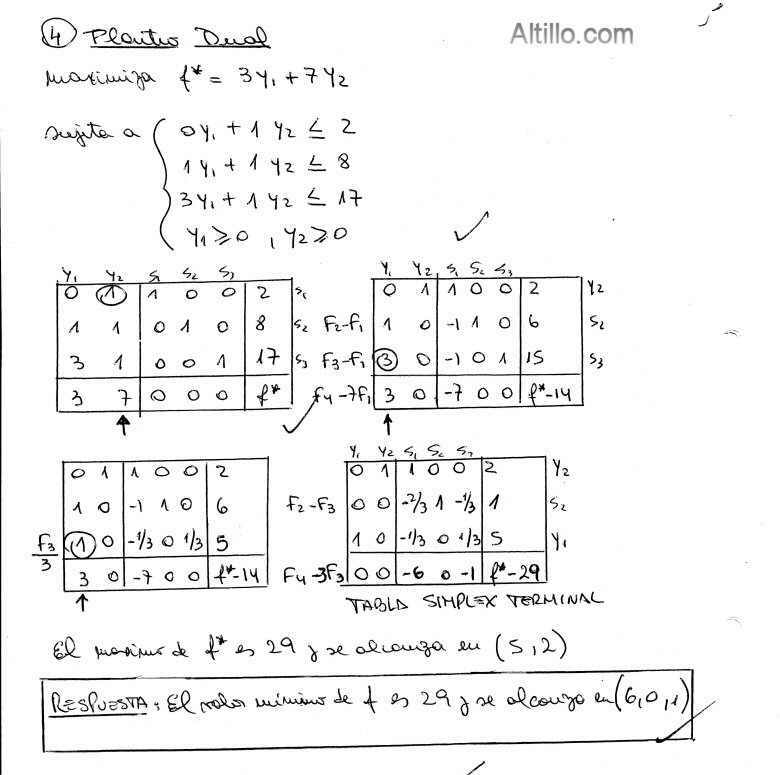 ④ Planteo Dual
Altillo.com
maximiza f* = 3y₁ + 7y₂
sujeta a { 0y₁ + 1y₂ ≤ 2
1y₁ + 1y₂ ≤ 8
3y₁ + 1y₂ ≤ 17
y₁ ≥ 0, y₂ ≥ 0
y₁ y₂ s₁ s₂ s₃
0 1 1 0 0 2 s₁
1 1 0 1 0 8 s₂
3 1 0 0 1 17 s₃
3 7 0 0 0 f*
y₁ y₂ s₁ s₂ s₃
0 1 1 0 0 2 y₂
F₂-F₁ 1 0 -1 1 0 6 s₂
F₃-F₁ 3 0 -1 0 1 15 s₃
F₄-7F₁ 3 0 -7 0 0 f*-14
0 1 1 0 0 2
1 0 -1 1 0 6
F₃/3 1 0 -1/3 0 1/3 5
3 0 -7 0 0 f*-14
y₁ y₂ s₁ s₂ s₃
0 1 1 0 0 2 y₂
F₂-F₃ 0 0 -2/3 1 -1/3 1 s₂
1 0 -1/3 0 1/3 5 y₁
F₄-3F₃ 0 0 -6 0 -1 f*-29
TABLA SIMPLEX TERMINAL
El maximo de f* es 29 y se alcanza en (5,2)
RESPUESTA: El valor minimo de f es 29 y se alcanza en (6,0,1)